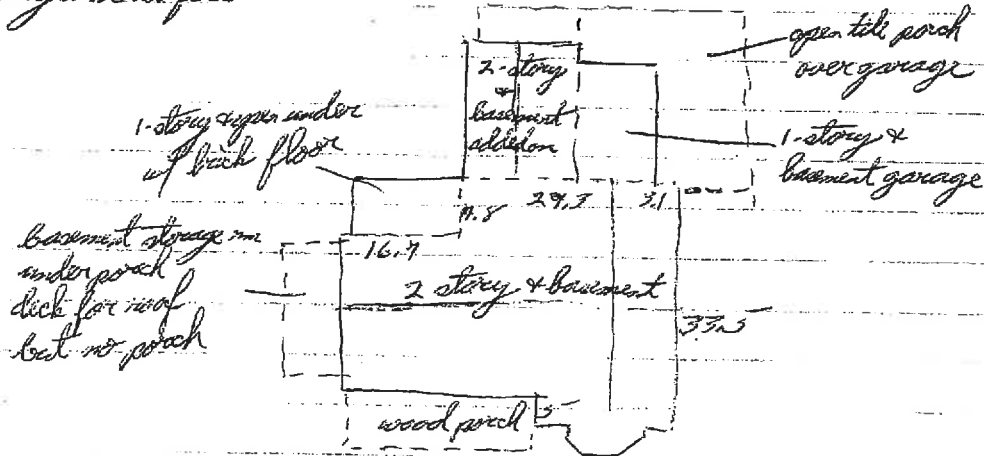 open tile porch
over garage
2-story
&
basement
added on
1-story & open under
w/ brick floor
1-story &
basement garage
29.3
3.1
16.7
basement storage rm
under porch
deck for roof
but no porch
2 story & basement
33.5
wood porch
5